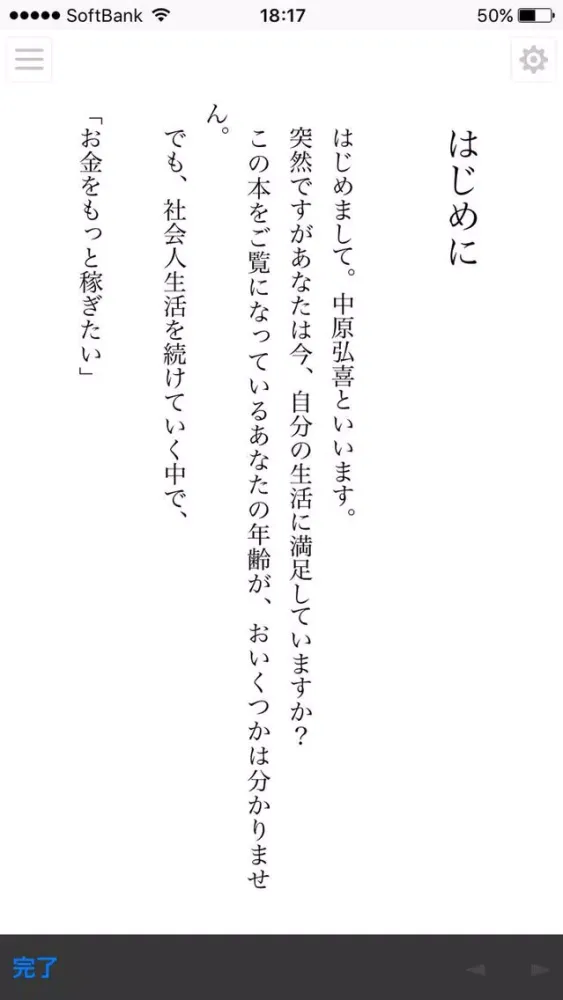 SoftBank 18:17 50%
はじめに
はじめまして。中原弘喜といいます。
突然ですがあなたは今、自分の生活に満足していますか？
この本をご覧になっているあなたの年齢が、おいくつかは分かりませ
ん。
でも、社会人生活を続けていく中で、
「お金をもっと稼ぎたい」
完了